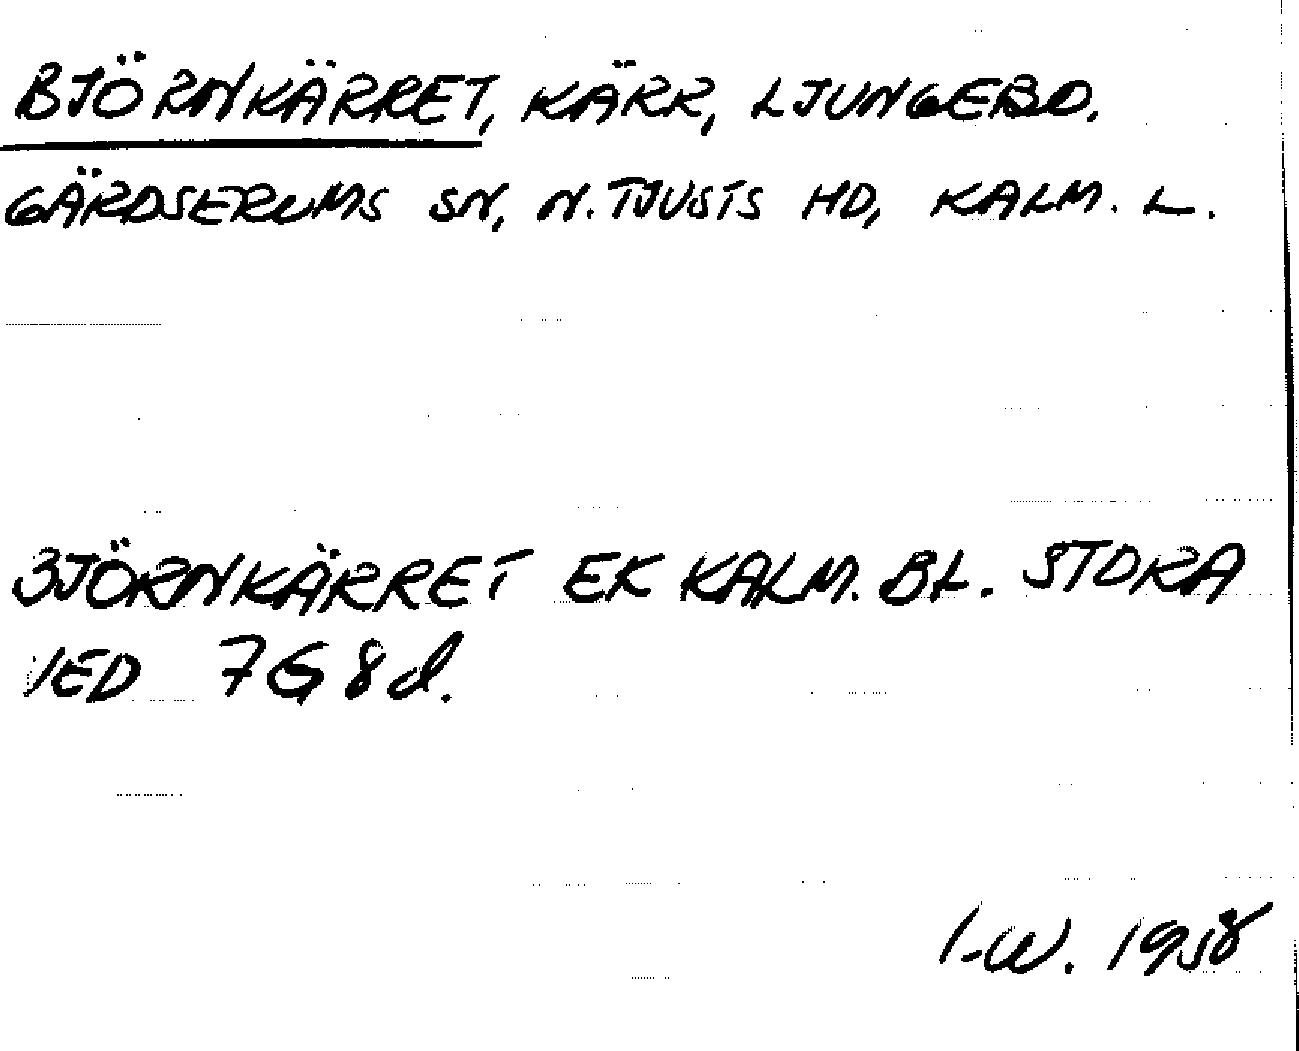 BJÖRNKÄRRET, KÄRR, LJUNGEBO.
GÄRDSERUMS SN, N. TJUSTS HD, KALM. L.
BJÖRNKÄRRET EK KALM. BL. STORA
VED 7G8d.
I-W. 1958